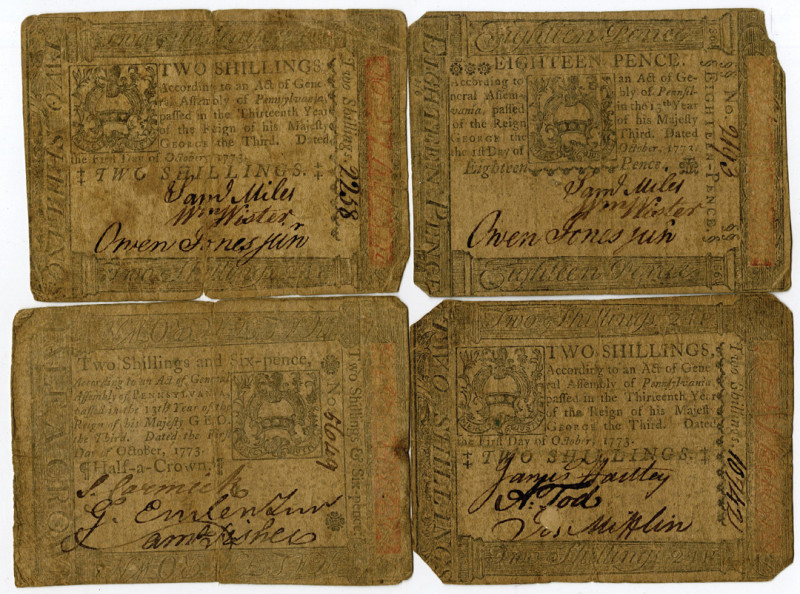 Two Shillings
TWO SHILLINGS
TWO SHILLINGS,
According to an Act of Gene
ral Assembly of Pennsylvania,
passed in the Thirteenth Year
of the Reign of his Majesty
GEORGE the Third. Dated
the First Day of October, 1773.
‡ TWO SHILLINGS. ‡
Two Shillings.
2258
Saml Miles
Wm Wister
Owen Jones jun
Two Shillings
Eighteen Pence
EIGHTEEN PENCE
EIGHTEEN PENCE.
According to an Act of Ge-
neral Assem- bly of Pennsyl-
vania, passed in the 13th Year
of the Reign of his Majesty
GEORGE the Third. Dated
the 1st Day of October, 1773.
Eighteen Pence.
No. 2693
EIGHTEEN-PENCE.
Saml Miles
Wm Wister
Owen Jones jun
Eighteen Pence
Two Shillings and Six-pence,
According to an Act of General
Assembly of PENNSYLVANIA,
passed in the 13th Year of the
Reign of his Majesty GEO.
the Third. Dated the First
Day of October, 1773.
¶Half-a-Crown.¶
No
Two Shillings & Six-pence.
S. Carmick
G. Emlen Jun
Saml Fisher
Two Shillings
TWO SHILLINGS
TWO SHILLINGS,
According to an Act of Gene
ral Assembly of Pennsylvania,
passed in the Thirteenth Year
of the Reign of his Majesty
GEORGE the Third. Dated
the First Day of October, 1773.
‡ TWO SHILLINGS. ‡
Two Shillings.
10742
James Hartley
A. Tod
Jos Mifflin
Two Shillings